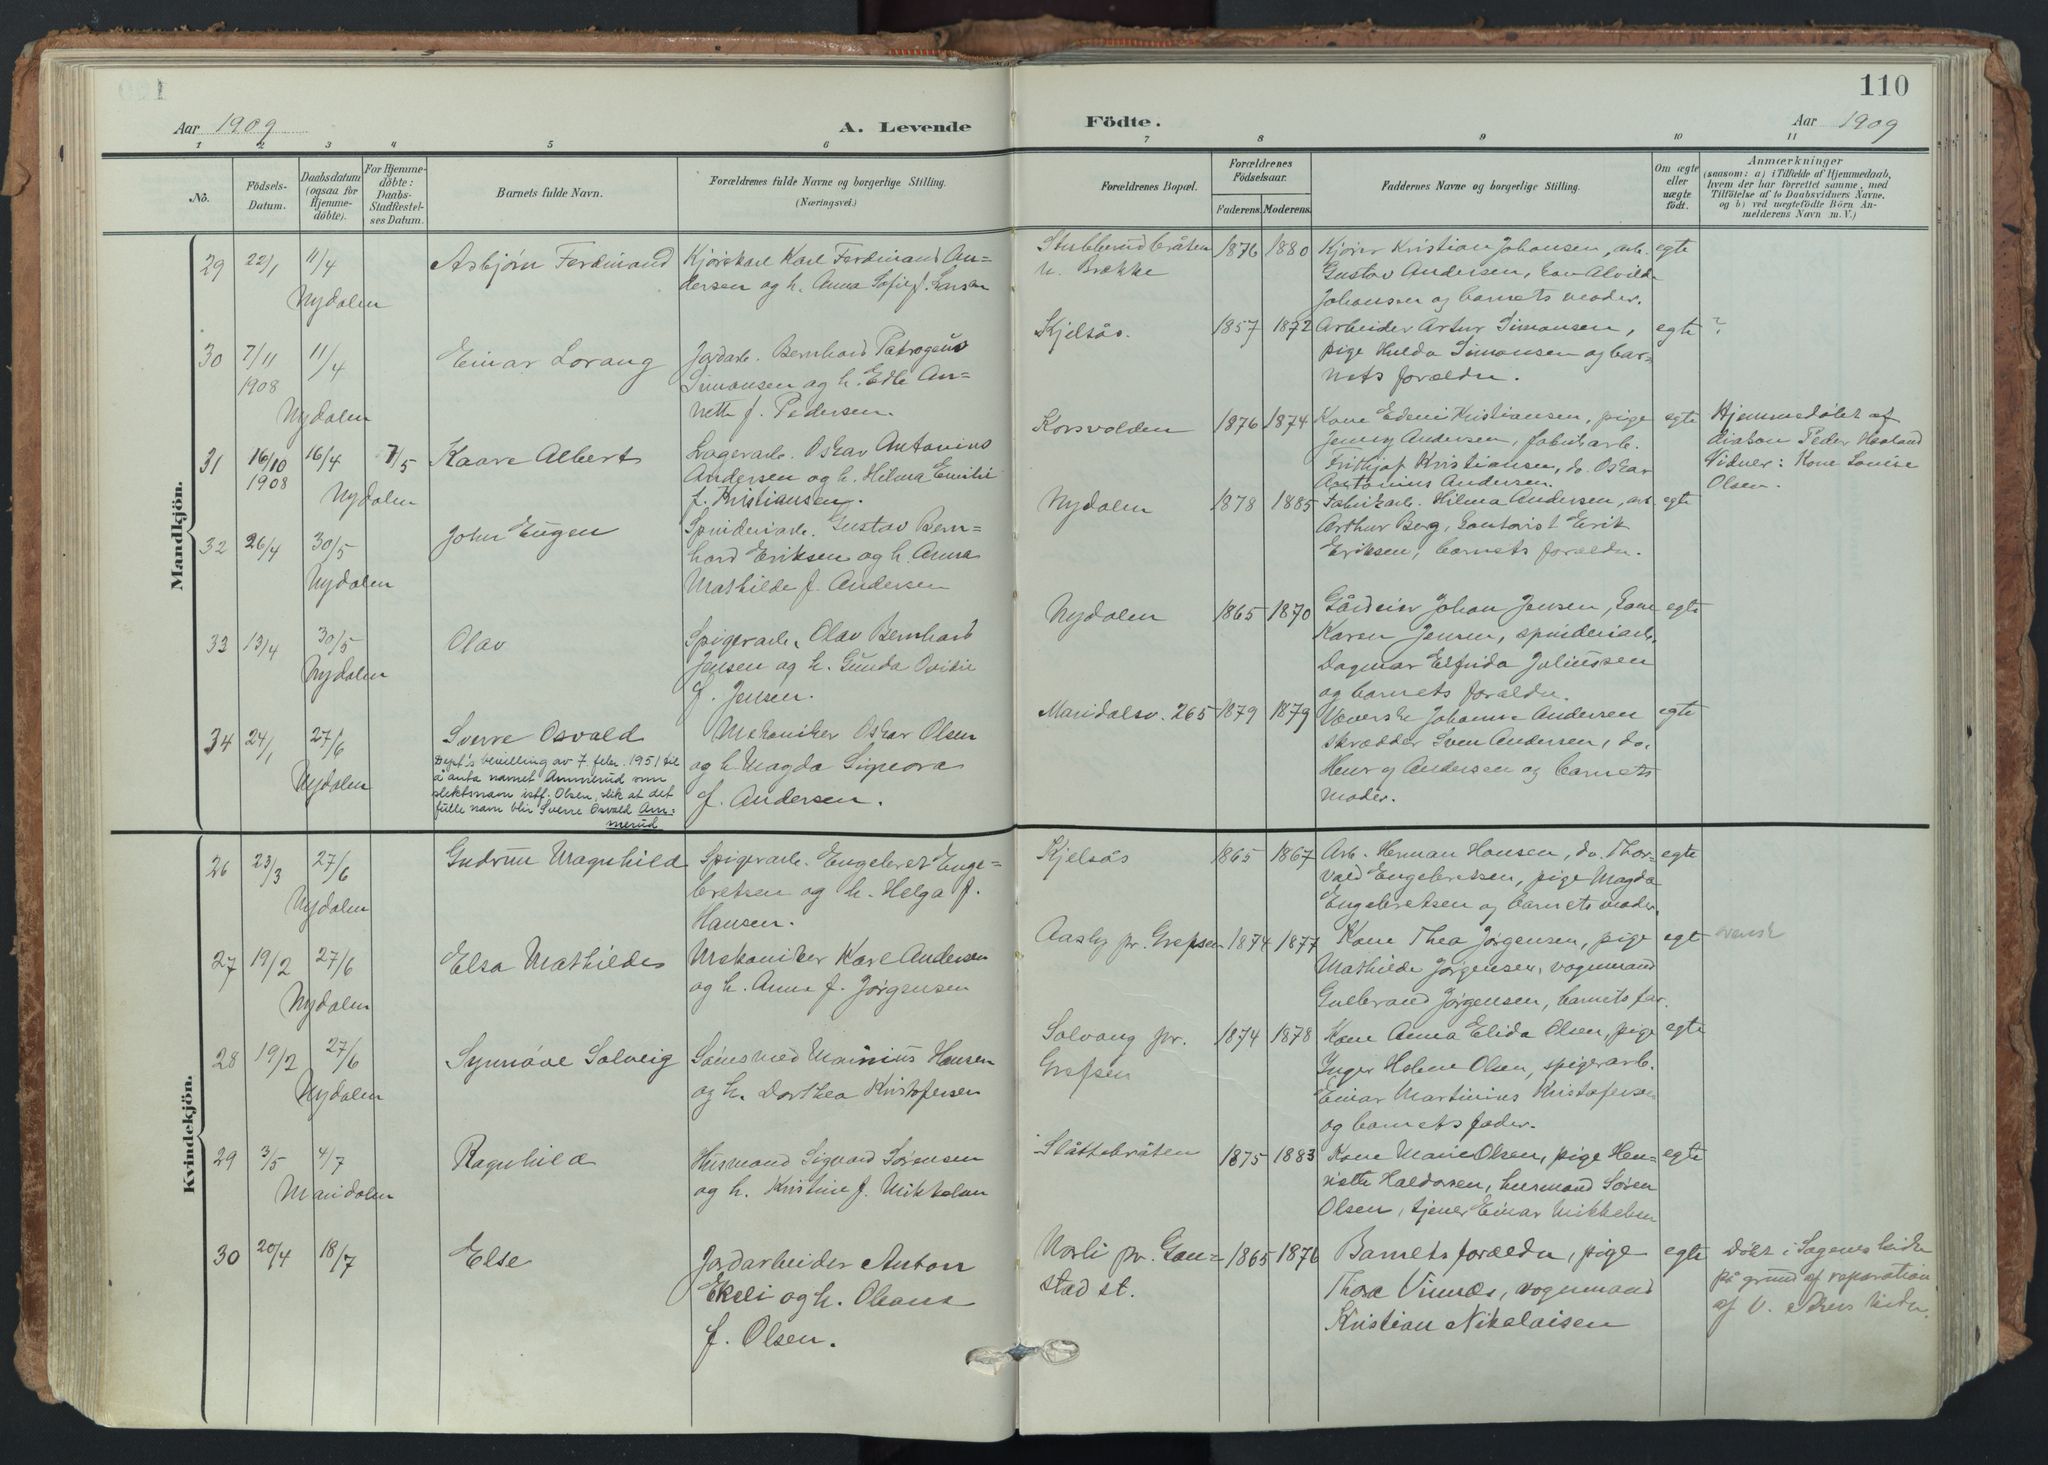 110
Aar 1909
A. Levende
Födte.
Aar 1909
1 2 3 4 5 6 7 8 9 10 11
No.
Födsels-
Datum.
Daabsdatum
(ogsaa for
Hjemme-
döbte).
For Hjemme-
döbte:
Daabs-
Stadfæstel-
ses Datum.
Barnets fulde Navn.
Forældrenes fulde Navne og borgerlige Stilling.
(Næringsvei.)
Forældrenes Bopæl.
Forældrenes
Födselsaar.
Faderens. Moderens.
Faddernes Navne og borgerlige Stilling.
Om ægte
eller
uægte
födt.
Anmærkninger
(saasom: a) i Tilfælde af Hjemmedaab,
hvem der har forrettet samme, med
Tilföielse af to Daabsvidners Navne,
og b) ved uægtefödte Börn An-
melderens Navn m. V.)
Mandkjön.
29 22/1 11/4
Nydalen
Asbjørn Ferdinand
Kjørekarl Karl Ferdinand An-
dersen og h. Anna Sofie f. Larsen
Stubberudbråten
n. Brække
1876 1880
Kjører Kristian Johansen, arb.
Gustav Andersen, kone Alvilde
Johansen og barnets moder.
egte
30 7/11
1908
11/4
Nydalen
Einar Lorang
Jordarb. Bernhard Petrogenus
Simonsen og h. Edle An-
nette f. Pedersen.
Kjelsås.
1857 1872
Arbeider Artur Simonsen,
pige Hulda Simonsen og bar-
nets forældre.
egte ?
31 16/10
1908
16/4
Nydalen
7/5
Kaare Albert
Lagerarb. Oskar Antonius
Andersen og h. Hilma Emilie
f. Kristiansen.
Korsvolden
1876 1874
Kone Edevi Kristiansen, pige
Jenny Andersen, fabrikarb.
Frithjof Kristiansen, do. Oskar
Antonius Andersen.
egte
Hjemmedøbt af
diakon Peder
Vidner: Kone Louise
Olsen.
32 26/4 30/5
Nydalen
John Eugen
Spinderiarb. Gustav Bern-
hard Eriksen og h. Anna
Mathilde f. Andersen
Nydalen
1878 1885
Fabrikarb. Hilma Andersen, arb.
Arthur Berg, kontorist Erik
Eriksen, barnets forældre.
egte
33 13/4 30/5
Nydalen
Olav
Spigerarb. Olav Bernhard
Jensen og h. Gunda Ovidie
f. Jensen.
Nydalen
1865 1870
Gårdeier Johan Jensen, kone
Karen Jensen, spinderiarb.
Dagmar Elfrida Juliussen
og barnets forældre.
egte
34 24/1 27/6
Nydalen
Sverre Osvald
Dept's bevilling av 7. febr. 1951 til
å anta navnet Ammerud som
slektsnavn istf. Olsen, slik at det
fulle navn blir Sverre Osvald Am-
merud
Mekaniker Oskar Olsen
og h. Magda Signora
f. Andersen.
Maridalsv. 265
1879 1879
Væverske Johanne Andersen
skrædder Sven Andersen, do.
Henry Andersen og barnets
moder.
egte
Kvindekjön.
26 23/3 27/6
Nydalen
Gudrun Magnhild
Spigerarb. Engebret Enge-
bretsen og h. Helga f.
Hansen.
Kjelsås
1865 1867
Arb. Herman Hansen, do. Thor-
vald Engebretsen, pige Magda
Engebretsen og barnets moder.
egte
27 19/2 27/6
Nydalen
Elsa Mathilde
Mekaniker Karl Andersen
og h. Anna f. Jørgensen
Aasly pr. Grefsen
1874 1877
Kone Thea Jørgensen, pige
Mathilde Jørgensen, vognmand
Gulbrand Jørgensen, barnets far.
egte
svensk
28 19/2 27/6
Nydalen
Synnøve Solveig
Sønesmed Marinius Hansen
og h. Dorthea Kristofersen
Solvang pr.
Grefsen
1874 1878
Kone Anna Elida Olsen, pige
Inger Helene Olsen, spigerarb.
Einar Martinius Kristofersen
og barnets fader.
egte
29 3/5 4/7
Maridalen
Ragnhild
Husmand Sigvard Sørensen
og h. Kristine f. Mikkelsen
Slåttebråten
1875 1883
Kone Marie Olsen, pige Hen-
riette Haldorsen, husmand Søren
Olsen, tjener Einar Mikkelsen
egte
30 20/4 18/7
Else
Jordarbeider Anton
Ekeli og h. Oleana
f. Olsen.
Norli pr. Gau-
stad st.
1865 1876
Barnets forældre, pige
Thora Vinnes, vognmand
Kristian Nikolaisen
egte
Døbt i Sagenes kirke
på grund af reparation
af V. Akers kirke.